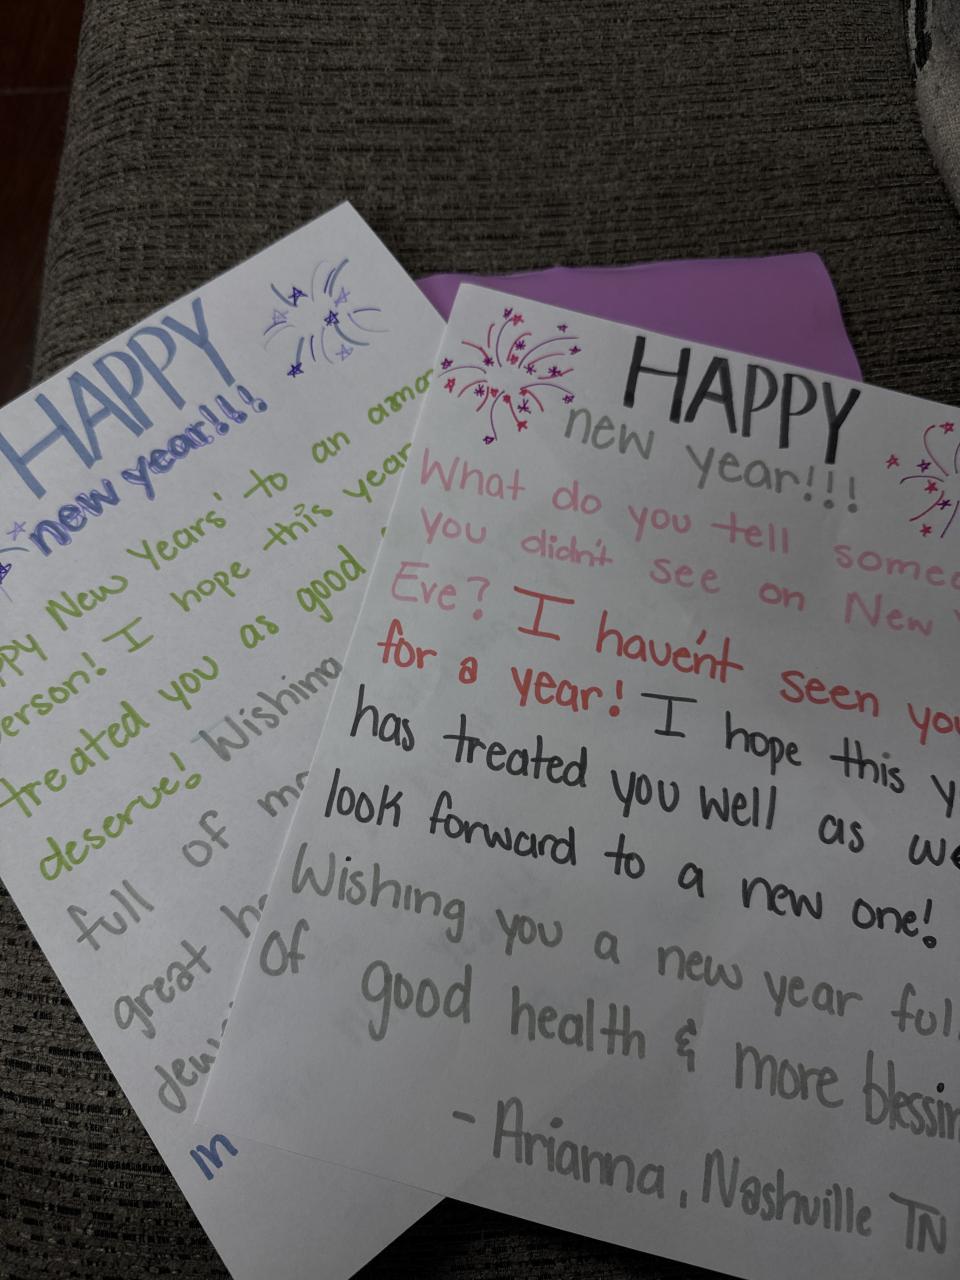 HAPPY
new year!!!
New Years' to an
person! I hope this year
treated you as good
deserve! Wishing
full of
great
IN
HAPPY
new year!!!
What do you tell
you didn't see on New
Eve? I haven't seen you
for a year! I hope this
has treated you well as
look forward to a new one!
Wishing you a new year
of good health & more
- Arianna, Nashville TN